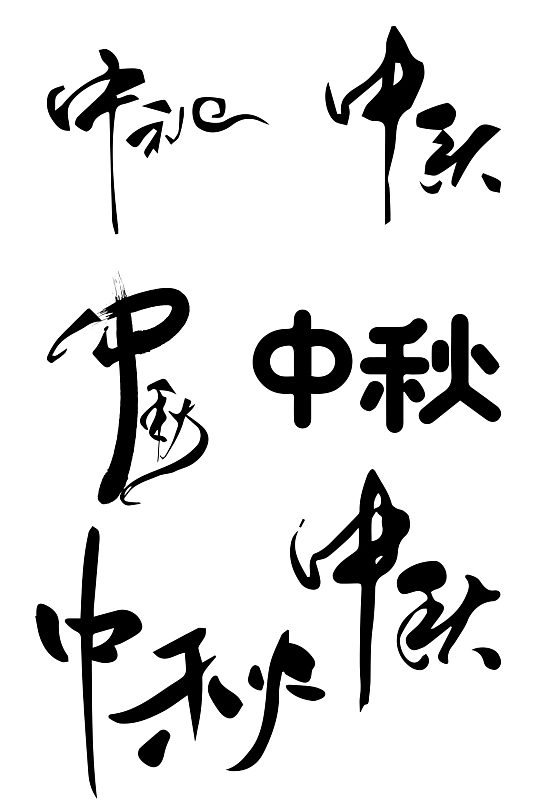 中秋
中秋
中秋
中秋
中秋
中秋